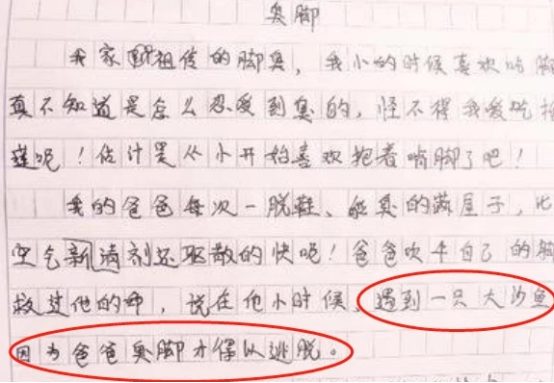 臭脚
我家祖传的脚臭，我小的时候喜欢啃脚
真不知道是怎么忍受到臭的，怪不得我爱吃
莲呢！估计是从小开始喜欢抱着啃脚了吧！
我的爸爸每次一脱鞋、能臭的满屋子，比
空气新清剂还驱散的快呢！爸爸吹牛自己的脚
救过他的命，说在他小时候，遇到一只大沙鱼
因为爸爸臭脚才得以逃脱。